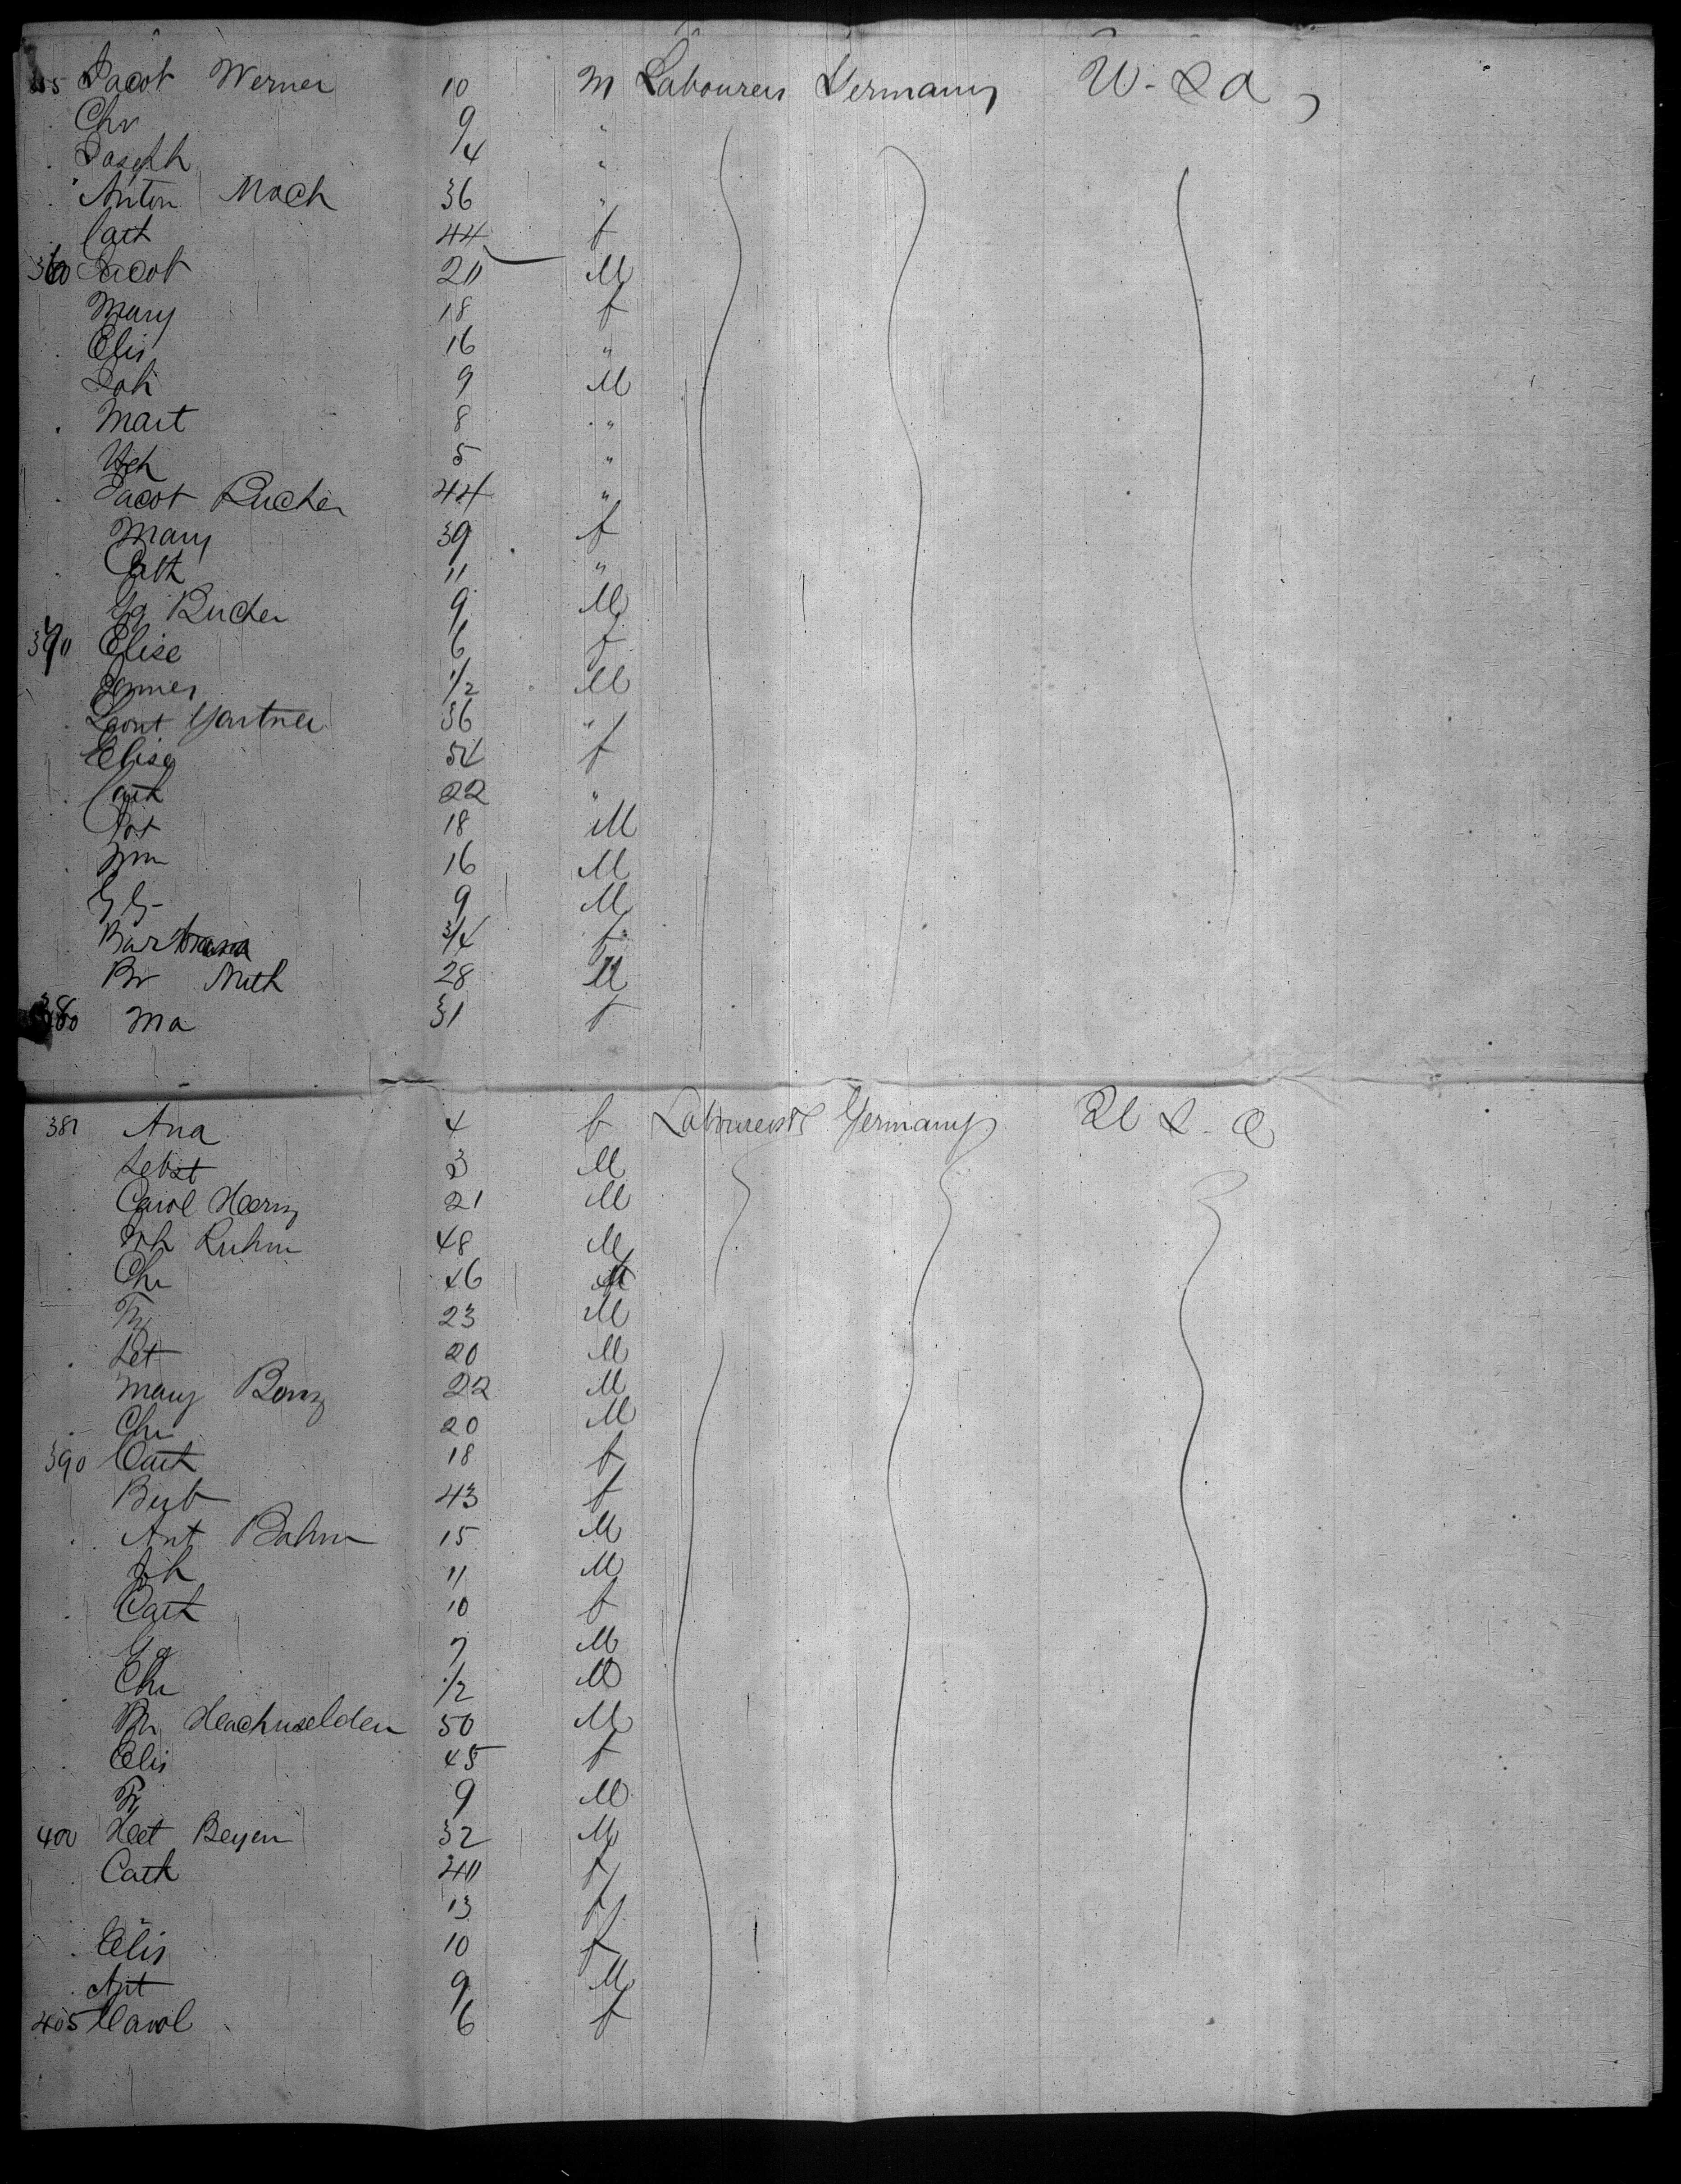 355 Jacob Werner 10 M Labourers Germany U-S a,
Chr 9 "
Joseph /4 "
Anton Moch 36 "
Cath 44 f
360 Jacob 20 M
Mary 18 f
Elis 16 "
Joh 9 M
Mart 8 "
5 "
Jacob Bucher 44 "
Mary 39 f
Cath 11 "
Gg Bucher 9 M
370 Elise 6 f
1/2 M
Gartner 36 "
Elise 54 f
Cath 22 "
18 M
16 M
9 M
Bar 3/4 f
28 M
380 Ma 31 f
381 Ana 4 f Labourers Germany U S. a
Sebst 3 M
Carol 21 M
Joh Ruhm 48 M
Chr 46
23 M
Pet 20 M
Mary 22 M
Chr 20 M
390 Cath 18 f
43 f
Ant Bohm 15 M
Joh 11 M
Cath 10 f
Gg 7 M
Chr 1/2 M
50 M
Elis 45 f
Fr 9 M
400 Beyer 32 M
Cath 40 f
" 13 f
Elis 10 f
Ant 9 M
405 Carol 6 f